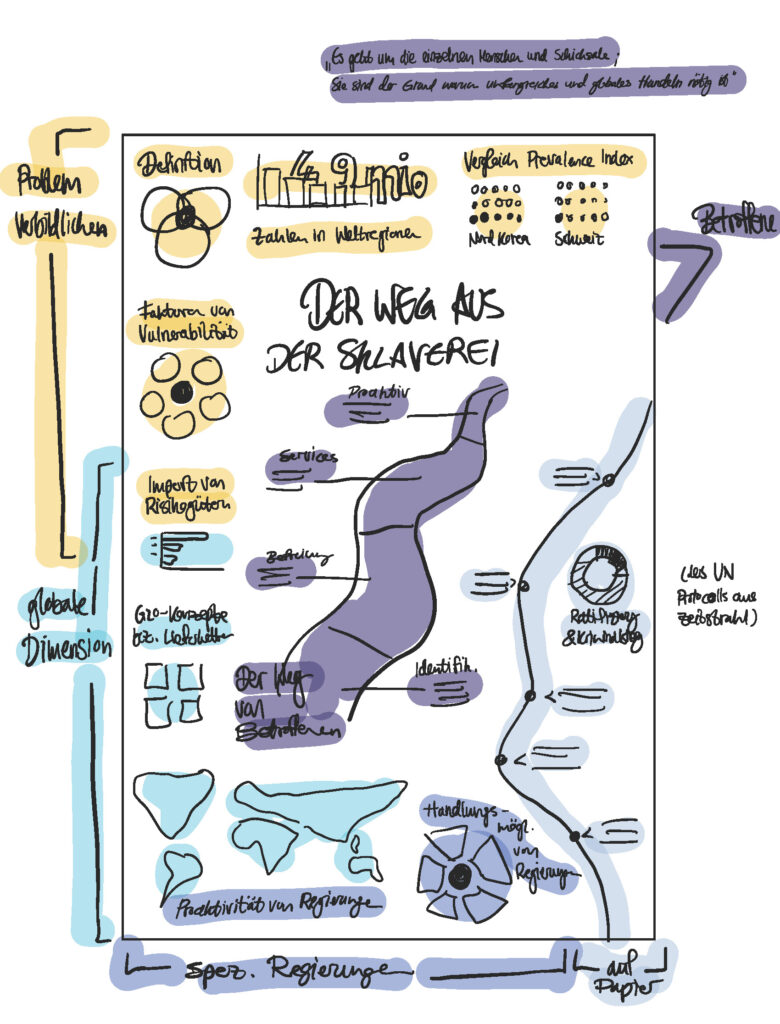 „Es geht um die einzelnen Menschen und Schicksale;
Sie sind der Grund warum umfangreiches und globales Handeln nötig ist"
Problem
Verbildlichen
Definition
49 mio
Zahlen in Weltregionen
Vergleich Prevalence Index
Nord Korea
Schweiz
Betroffene
Faktoren von
Vulnerabilität
DER WEG AUS
DER SKLAVEREI
Proaktiv
Services
Import von
Risikogütern
Befreiung
globale
Dimension
G20-Konzepte
bz. Lieferketten
Identifik.
Der Weg
von
Betroffenen
(des UN
Protocolls aus
Zeitstrahl)
Handlungs-
mögl.
von
Regierunge
Proaktivität von Regierunge
spez. Regierunge
auf
Papier